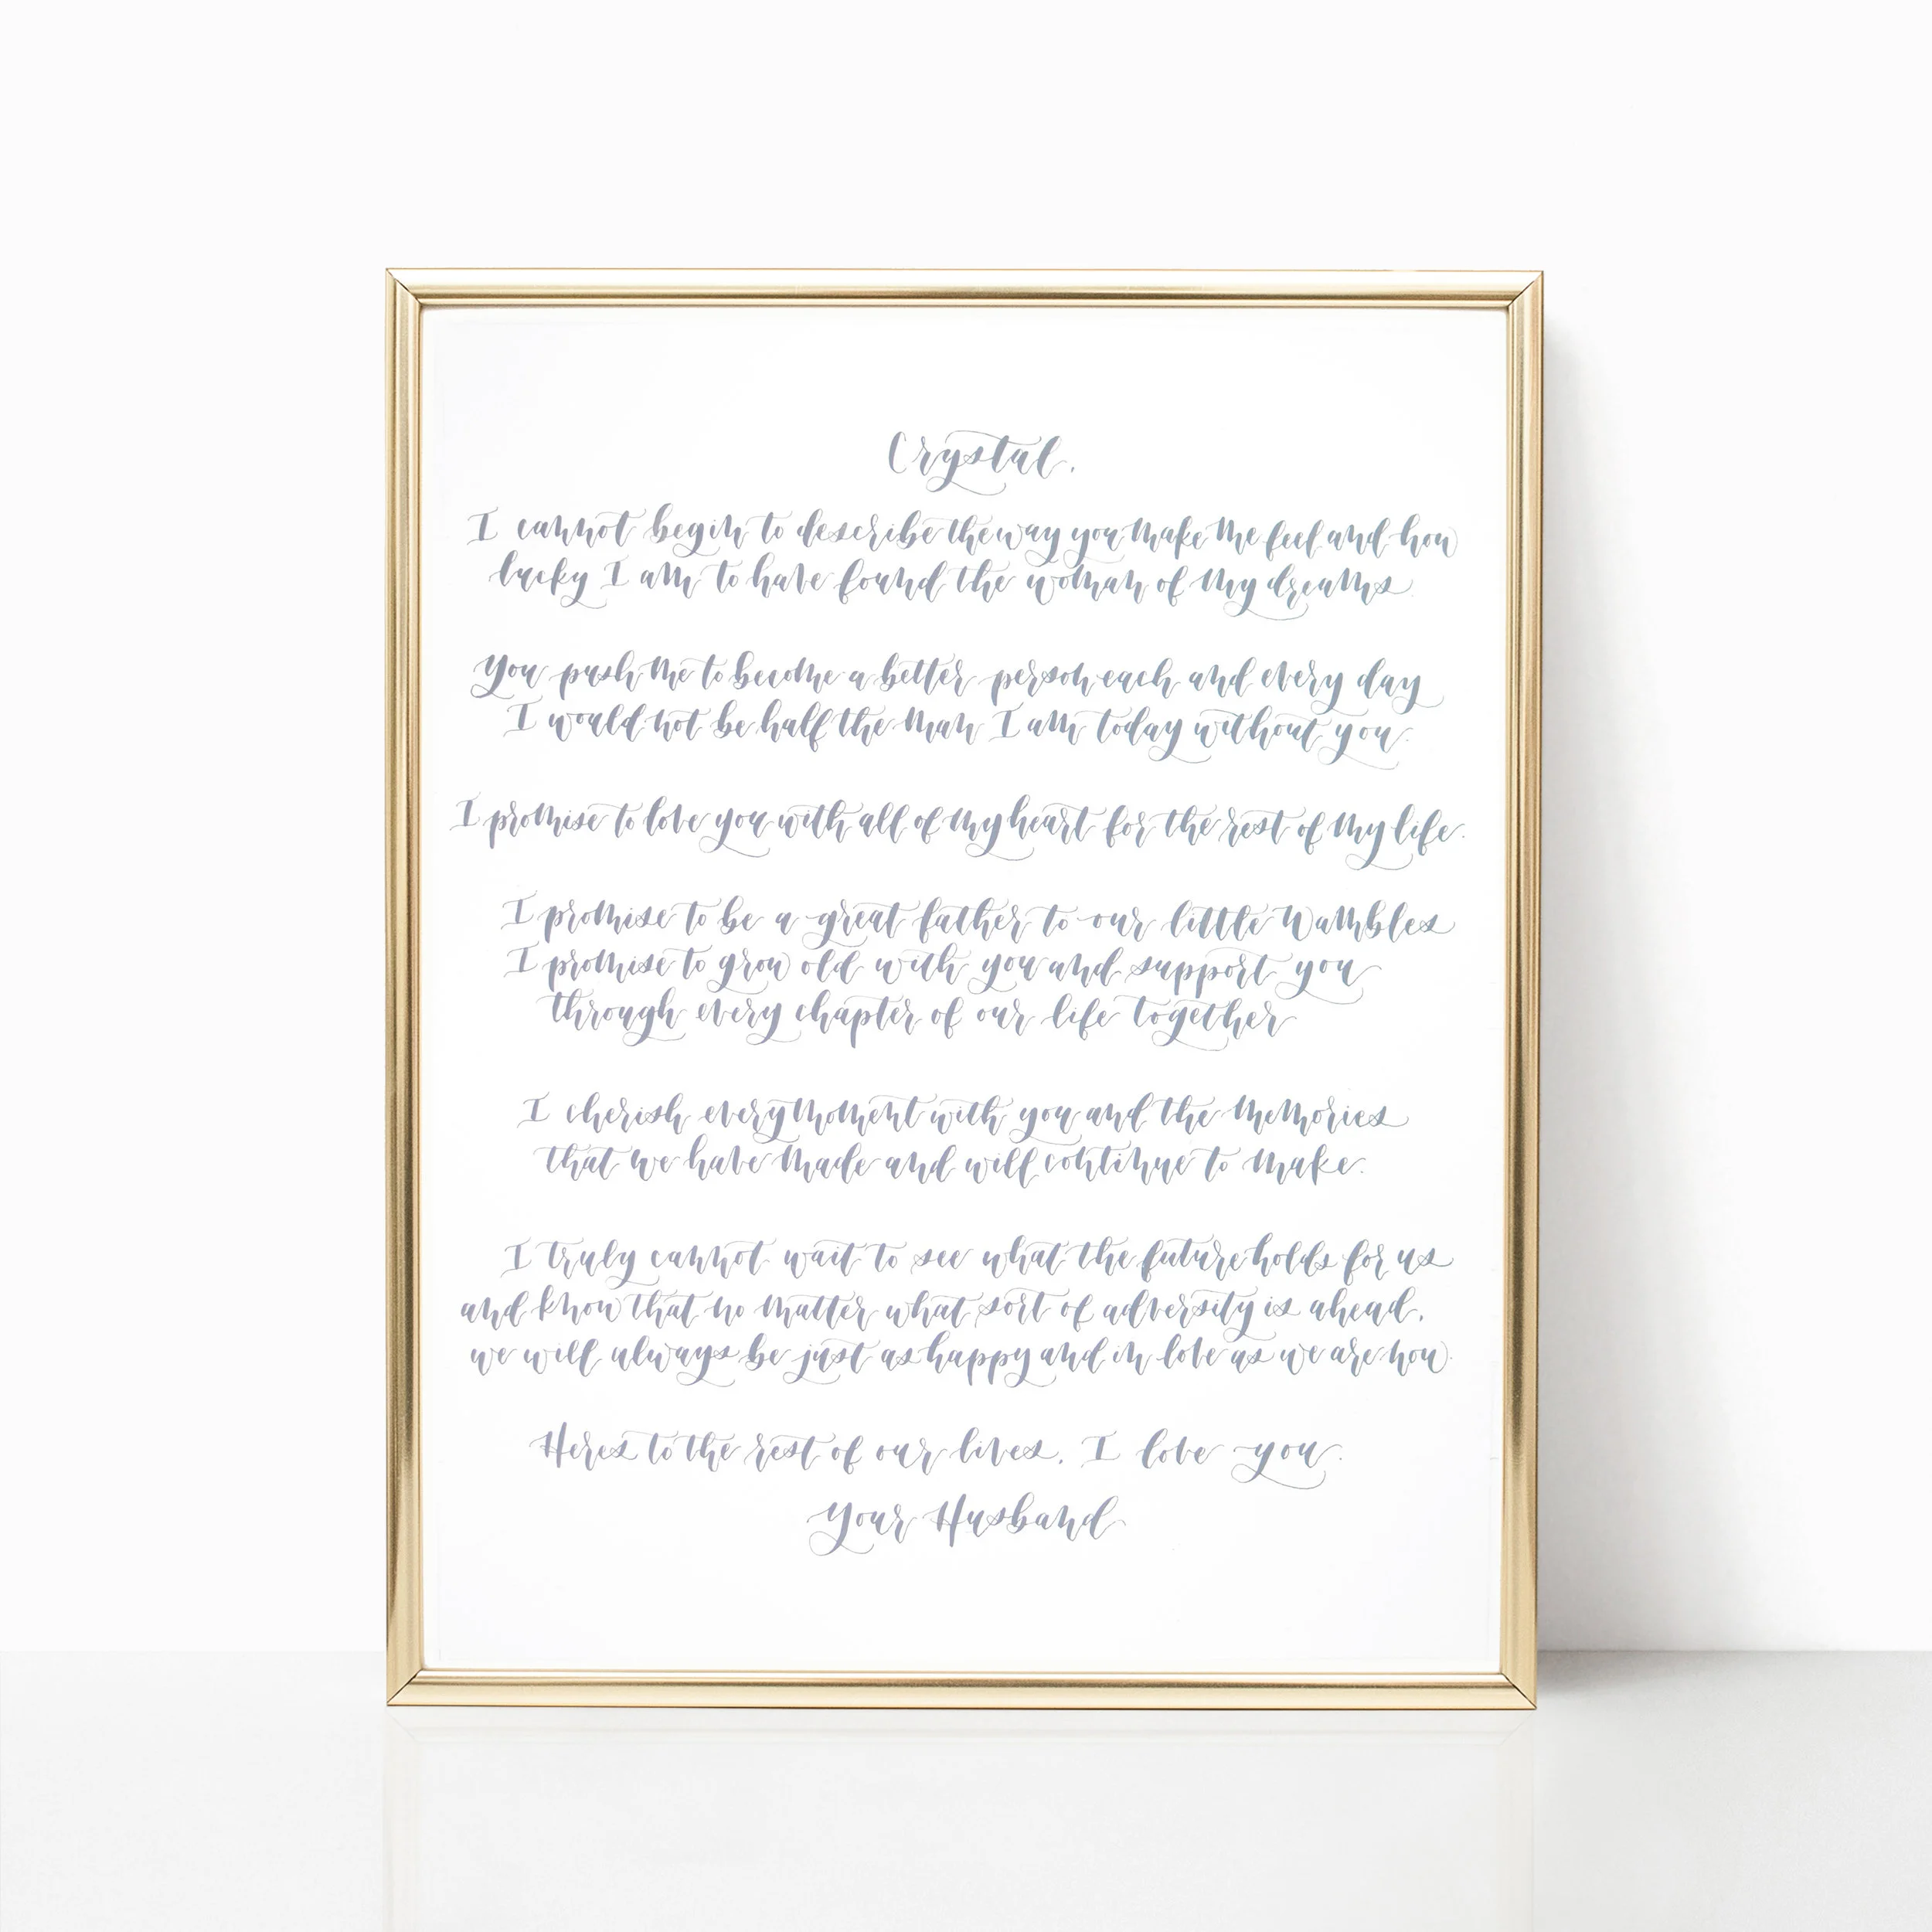 Crystal,
I cannot begin to describe the way you make me feel and how
lucky I am to have found the woman of my dreams.
You push me to become a better person each and every day
I would not be half the man I am today without you.
I promise to love you with all of my heart for the rest of my life.
I promise to be a great father to our little Wambles
I promise to grow old with you and support you
through every chapter of our life together
I cherish every moment with you and the memories
that we have made and will continue to make.
I truly cannot wait to see what the future holds for us
and know that no matter what sort of adversity is ahead,
we will always be just as happy and in love as we are now.
Heres to the rest of our lives, I love you.
Your Husband